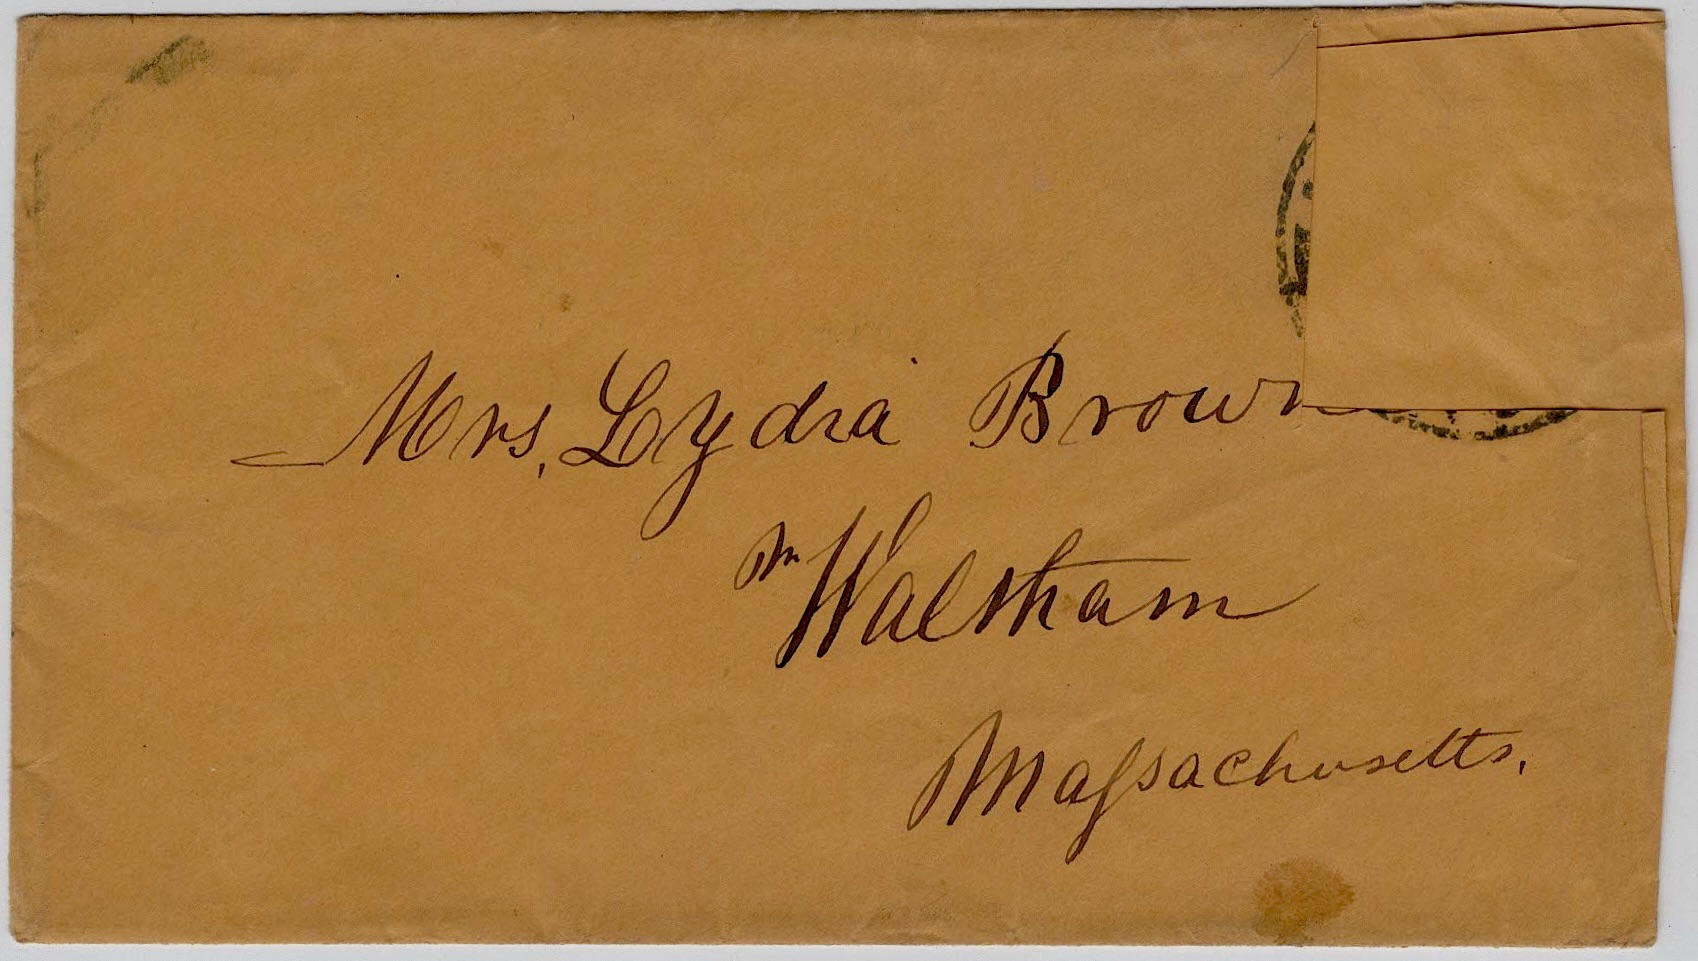 Mrs. Lydia Brown
Waltham
Massachusetts.